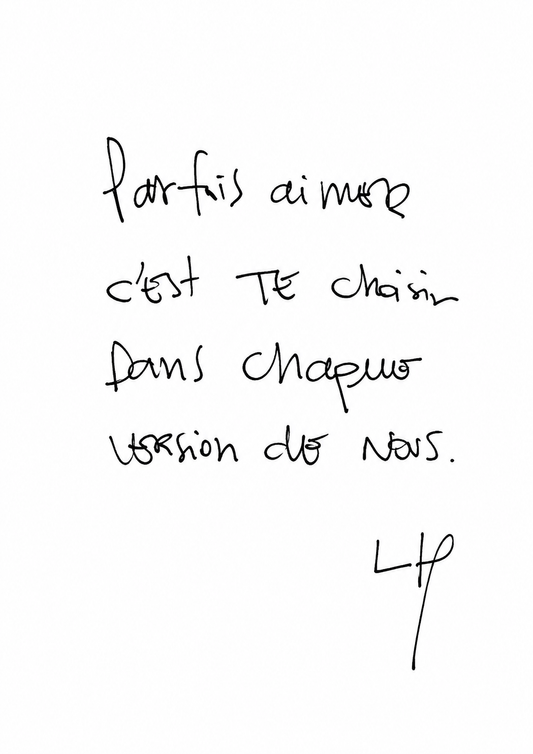 Parfois aimer
c'est TE choisir
Dans chaque
version de nous.
LH